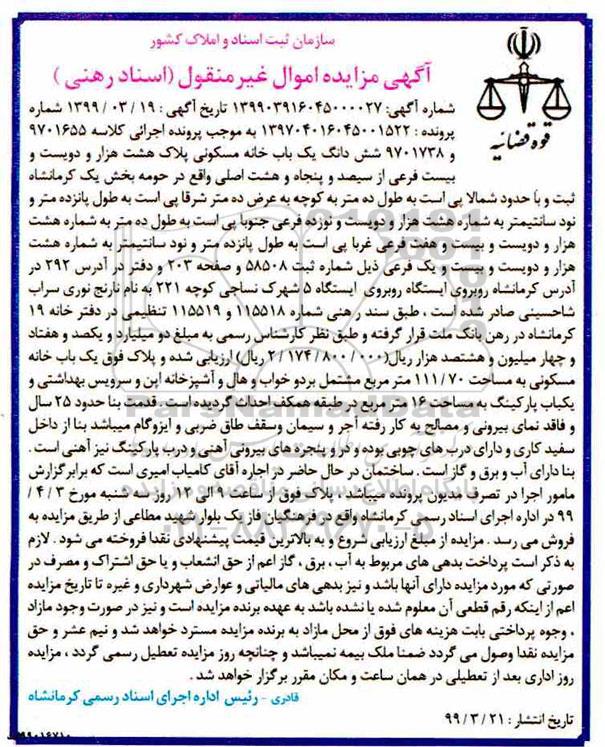 سازمان ثبت اسناد و املاک کشور
آگهی مزایده اموال غیرمنقول (اسناد رهنی )
قوه قضائیه
شماره آگهی: ۱۳۹۹۰۳۹۱۶۰۴۵۰۰۰۰۲۷ تاریخ آگهی : ۱۹ / ۰۳ / ۱۳۹۹ شماره
پرونده : ۱۳۹۷۰۴۰۱۶۰۴۵۰۰۱۵۲۲ به موجب پرونده اجرائی کلاسه ۹۷۰۱۶۵۵
و ۹۷۰۱۷۳۸ شش دانگ یک باب خانه مسکونی پلاک هشت هزار و دویست و
بیست فرعی از سیصد و پنجاه و هشت اصلی واقع در حومه بخش یک کرمانشاه
ثبت و با حدود شمالا پی است به طول ده متر به کوچه به عرض ده متر شرقا پی است به طول پانزده متر و
نود سانتیمتر به شماره هشت هزار و دویست و نوزده فرعی جنوبا پی است به طول ده متر به شماره هشت
هزار و دویست و بیست و هفت فرعی غربا پی است به طول پانزده متر و نود سانتیمتر به شماره هشت
هزار و دویست و بیست و یک فرعی ذیل شماره ثبت ۵۸۵۰۸ و صفحه ۲۰۳ و دفتر در آدرس ۲۹۲ در
آدرس کرمانشاه روبروی ایستگاه روبروی ایستگاه ۵ شهرک نساجی کوچه ۲۲۱ به نام نارنج نوری سراب
شاحسینی صادر شده است ، طبق سند رهنی شماره ۱۱۵۵۱۸ و ۱۱۵۵۱۹ تنظیمی در دفتر خانه ۱۹
کرمانشاه در رهن بانک ملت قرار گرفته و طبق نظر کارشناس رسمی به مبلغ دو میلیارد و یکصد و هفتاد
و چهار میلیون و هشتصد هزار ریال(۲/۱۷۴/۸۰۰/۰۰۰ ریال) ارزیابی شده و پلاک فوق یک باب خانه
مسکونی به مساحت ۱۱۱/۷۰ متر مربع مشتمل بردو خواب و هال و آشپزخانه اپن و سرویس بهداشتی و
یکباب پارکینگ به مساحت ۱۶ متر مربع در طبقه همکف احداث گردیده است . قدمت بنا حدود ۲۵ سال
و فاقد نمای بیرونی و مصالح به کار رفته آجر و سیمان وسقف طاق ضربی و ایزوگام میباشد بنا از داخل
سفید کاری و دارای درب های چوبی بوده و در و پنجره های بیرونی آهنی و درب پارکینگ نیز آهنی است .
بنا دارای آب و برق و گاز است . ساختمان در حال حاضر در اجاره آقای کامیاب امیری است که برابر گزارش
مامور اجرا در تصرف مدیون پرونده میباشد ، پلاک فوق از ساعت ۹ الی ۱۲ روز سه شنبه مورخ ۳ / ۴ /
۹۹ در اداره اجرای اسناد رسمی کرمانشاه واقع در فرهنگیان فاز یک بلوار شهید مطاعی از طریق مزایده به
فروش می رسد . مزایده از مبلغ ارزیابی شروع و به بالاترین قیمت پیشنهادی نقدا فروخته می شود . لازم
به ذکر است پرداخت بدهی های مربوط به آب ، برق ، گاز اعم از حق انشعاب و یا حق اشتراک و مصرف در
صورتی که مورد مزایده دارای آنها باشد و نیز بدهی های مالیاتی و عوارض شهرداری و غیره تا تاریخ مزایده
اعم از اینکه رقم قطعی آن معلوم شده یا نشده باشد به عهده برنده مزایده است و نیز در صورت وجود مازاد
، وجوه پرداختی بابت هزینه های فوق از محل مازاد به برنده مزایده مسترد خواهد شد و نیم عشر و حق
مزایده نقدا وصول می گردد ضمنا ملک بیمه نمیباشد و چنانچه روز مزایده تعطیل رسمی گردد ، مزایده
روز اداری بعد از تعطیلی در همان ساعت و مکان مقرر برگزار خواهد شد .
قادری - رئیس اداره اجرای اسناد رسمی کرمانشاه
تاریخ انتشار : ۹۹/۳/۲۱
ParsNamadData
۰۲۱-۸۸۳۴۹۶۷۰-۵